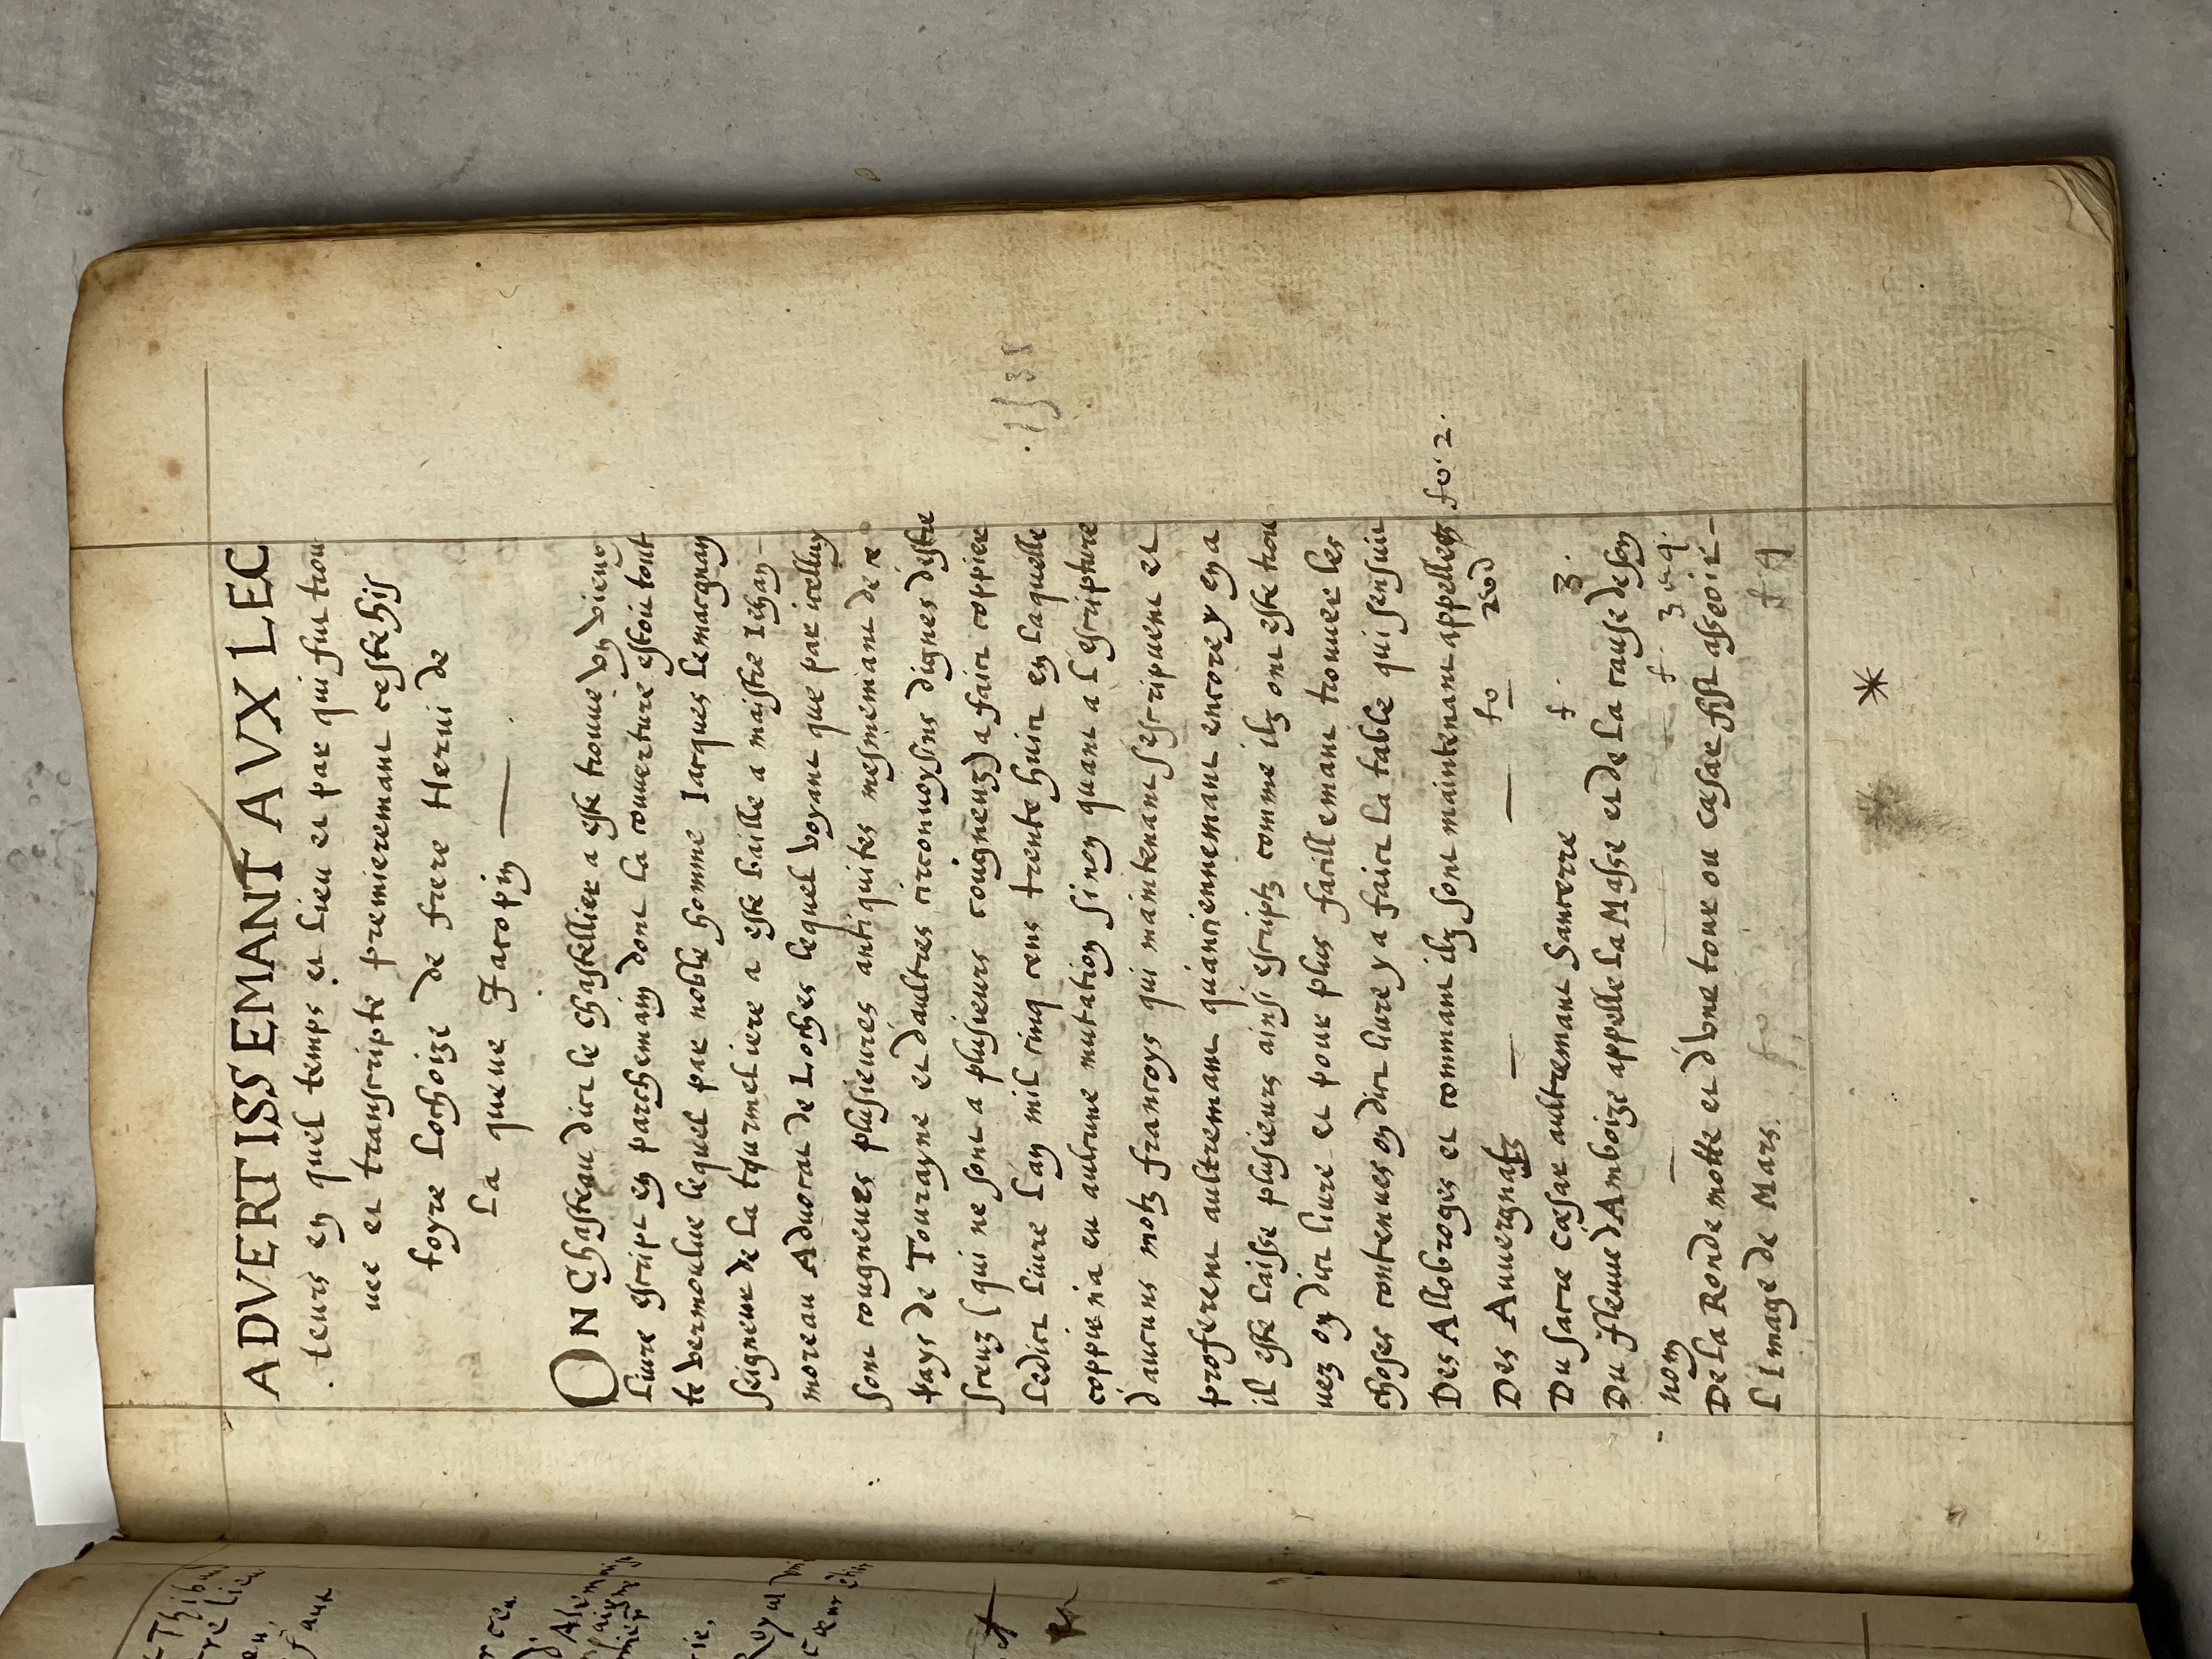 ADVERTISSEMANT AVX LEC
teurs en quel temps et lieu et par qui fut trou
uee et transcripte premieremant ceste his
toyre Lochoize de frere Herui de
La queue Jacopin
ON Chasteau dict le chastellier a este trouue vn vieux
Liure escript en parchemain dont la couuerture estoit tout
te vermoulue lequel par noble homme Iacques Lemargnay
seigneur de la tourmeliere a este baille a maistre Iehan
moreau Aduocat de Loches lequel voyant que par icelluy
sont congneues plusieures antiquites mesmemant de ce
pays de Tourayne et d'aultres circonuoysins dignes d'estre
sceuz (qui ne sont a plusieurs congneuz) a faict coppier
Ledict liure L'an mil cinq cens trente huict en laquelle
coppie n'a eu aulcune mutation sinon quant a L'escripture
d'aucuns motz francoys qui maintenant s'escripuent et
proferent aultremant qu'anciennemant encore y en a
il este laisse plusieurs ainsi escriptz comme ilz ont este trou
uez on dict liure et pour plus facillemant trouuer les
choses contenues on dict liure y a faict la table qui sensuit
.1538
Des Allobroges et commant ilz sont maintenant appellez fo. 2.
Des Auuergnatz fo
Du sacre Cæsar aultremant Sancerre f. 3.
Du fleuue d'Amboize appelle la Masse et de la cause de son
nom f. 3 4.
De la Ronde motte et d'vne tour ou Cæsar fist asseoir
L'Image de Mars. fo f 4